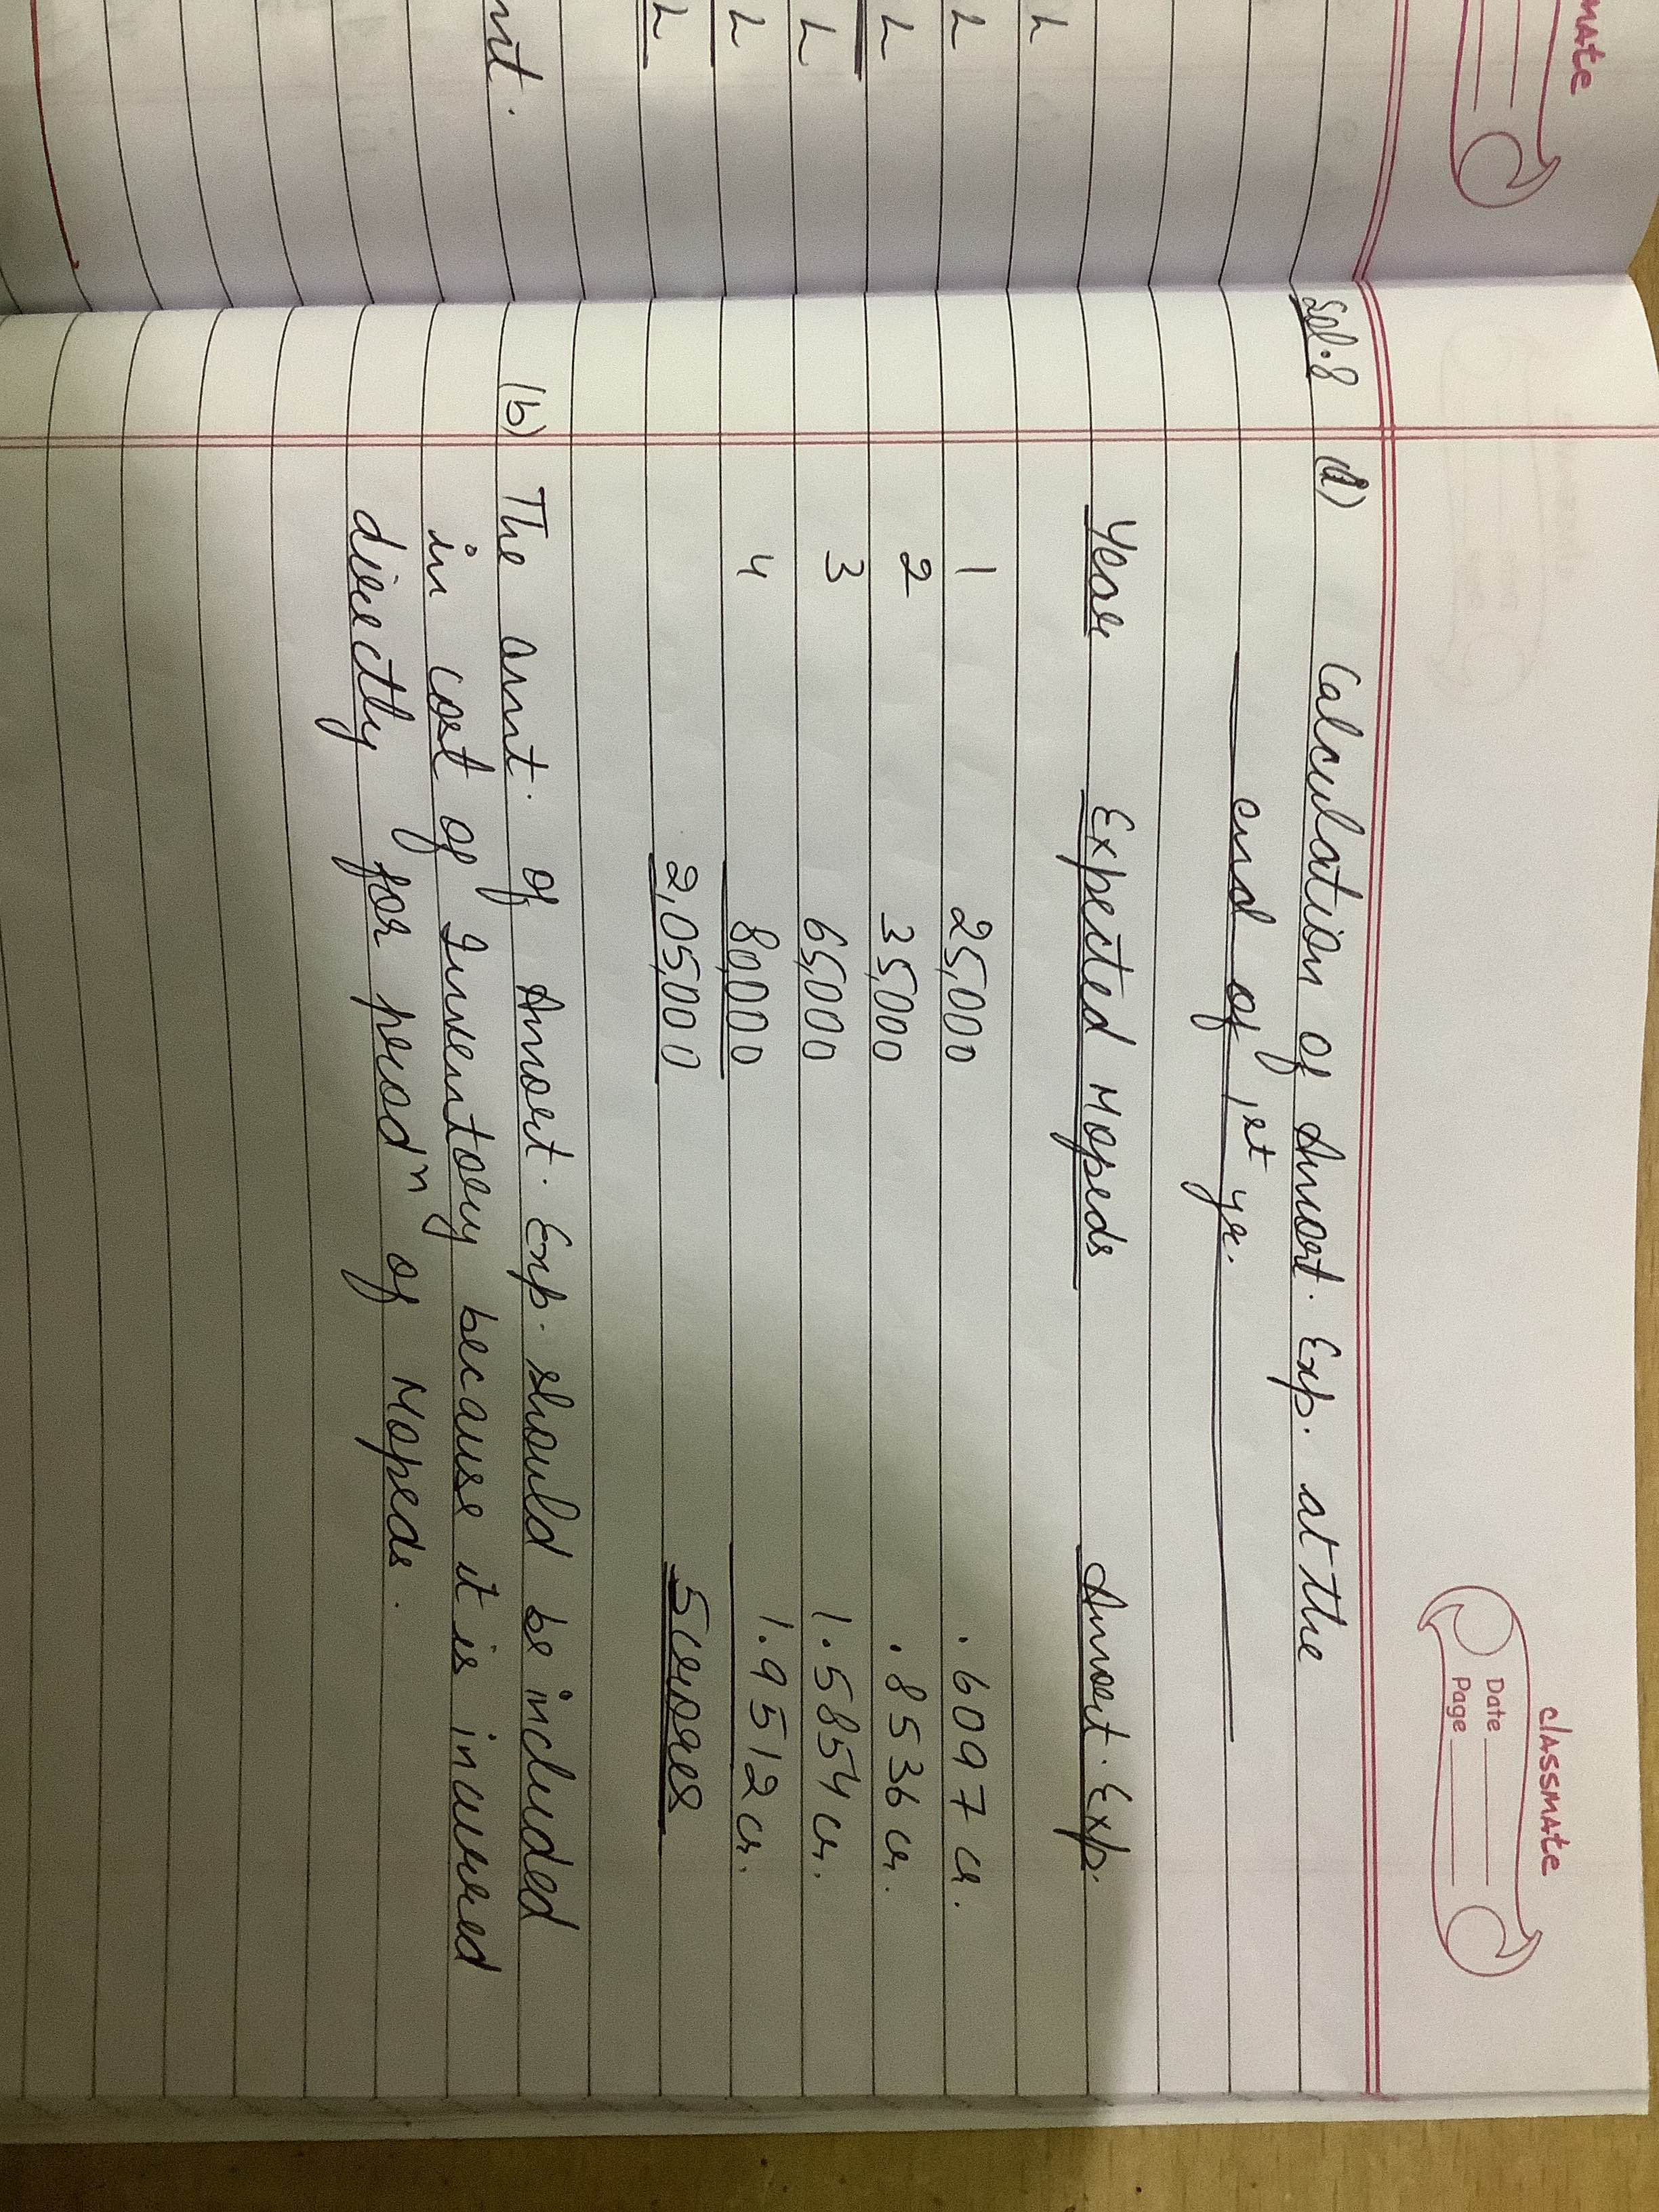 classmate
Date
Page
Sol.8 (a) Calculation of Amort. Exp. at the
end of 1st yr.
Year Expected Mopeds Amort. Exp.
1 25,000 .6097 cr.
2 35,000 .8536 cr.
3 65,000 1.5854 cr.
4 80,000 1.9512 cr.
2,05,000 5 crores
(b) The amt. of Amort. Exp. should be included
in cost of Inventory because it is incurred
directly for prodn of Mopeds.